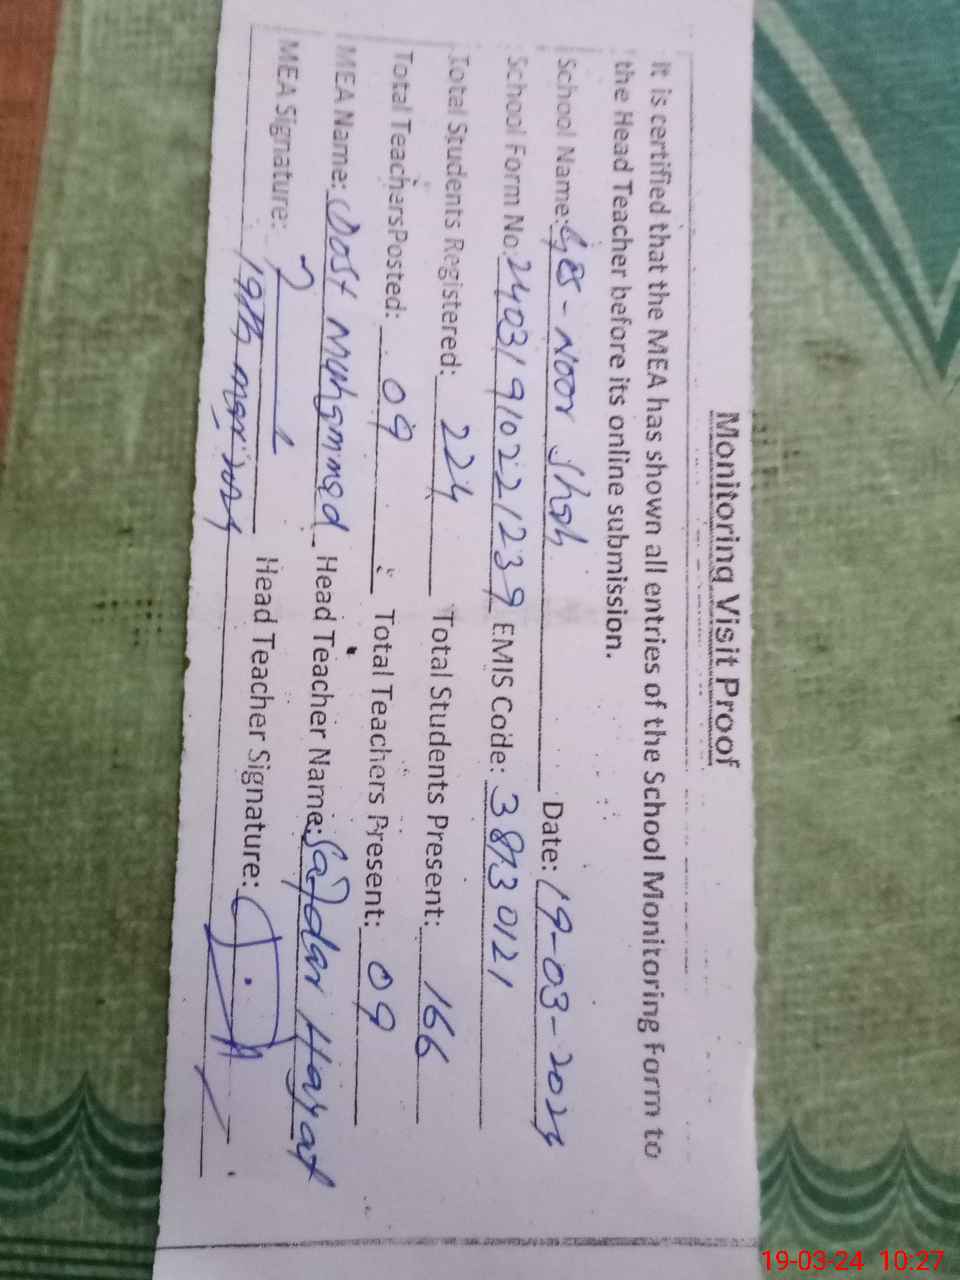 Monitoring Visit Proof
It is certified that the MEA has shown all entries of the School Monitoring Form to
the Head Teacher before its online submission.
School Name: GBS - Noor Shah Date: 19-03-2024
School Form No: 24031910221239 EMIS Code: 38130121
Total Students Registered: 224 Total Students Present: 166
Total Teachers Posted: 09 Total Teachers Present: 09
MEA Name: Dost Muhammad Head Teacher Name: Safdar Hayat
MEA Signature: Head Teacher Signature:
19th mar 2024
19-03-24 10:27